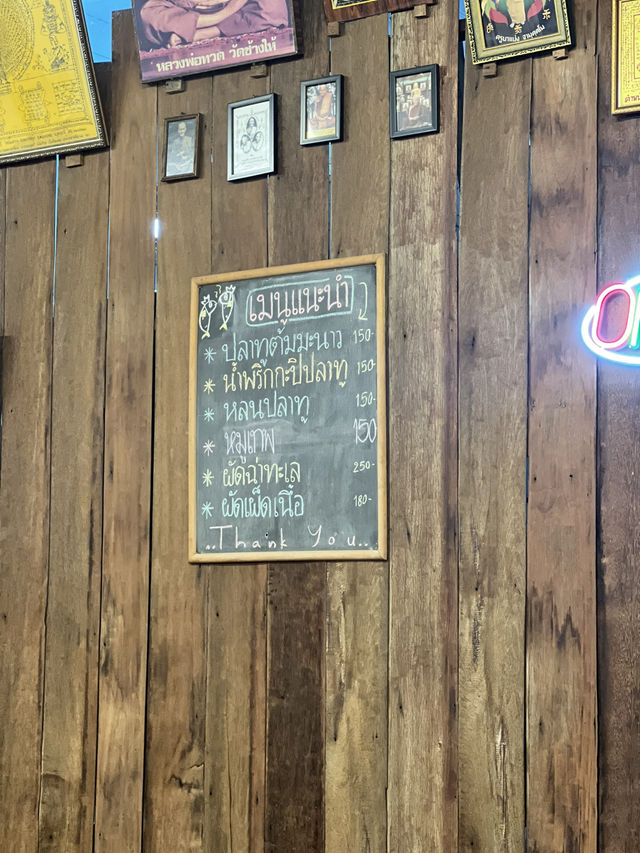 หลวงพ่อทวด วัดช้างให้
เมนูแนะนำ
* ปลาทูต้มมะนาว 150-
* น้ำพริกกะปิปลาทู 150-
* หลนปลาทู 150-
* หมูเทพ 150
* ผัดฉ่าทะเล 250-
* ผัดเผ็ดเนื้อ 180-
..Thank You..